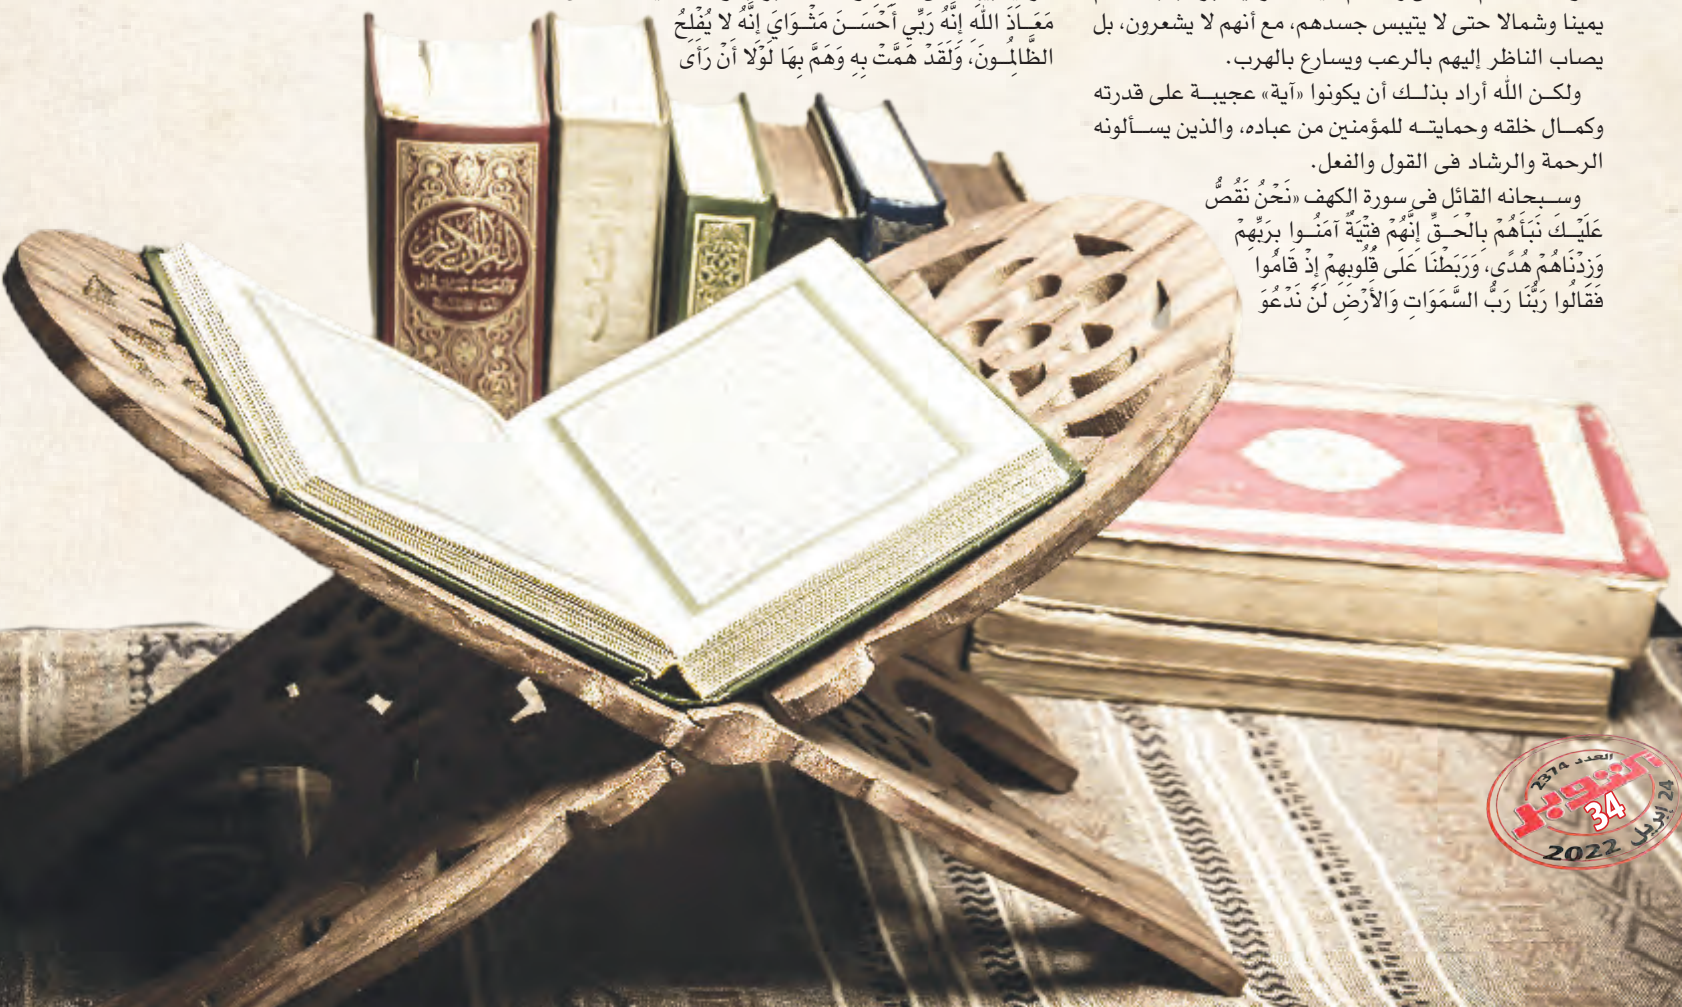 يمينا وشمالا حتى لا يتيبس جسدهم، مع أنهم لا يشعرون، بل
يصاب الناظر إليهم بالرعب ويسارع بالهرب.
ولكن الله أراد بذلك أن يكونوا «آية» عجيبة على قدرته
وكمال خلقه وحمايته للمؤمنين من عباده، والذين يسألونه
الرحمة والرشاد فى القول والفعل.
وسبحانه القائل فى سورة الكهف «نَحْنُ نَقُصُّ
عَلَيْكَ نَبَأَهُمْ بِالْحَقِّ إِنَّهُمْ فِتْيَةٌ آمَنُوا بِرَبِّهِمْ
وَزِدْنَاهُمْ هُدًى، وَرَبَطْنَا عَلَى قُلُوبِهِمْ إِذْ قَامُوا
فَقَالُوا رَبُّنَا رَبُّ السَّمَوَاتِ وَالأَرْضِ لَنْ نَدْعُوَ
مَعَاذَ اللَّهِ إِنَّهُ رَبِّي أَحْسَنَ مَثْوَايَ إِنَّهُ لا يُفْلِحُ
الظَّالِمُونَ، وَلَقَدْ هَمَّتْ بِهِ وَهَمَّ بِهَا لَوْلا أَنْ رَأَى
القرآن الكريم
العدد 2374
أكتوبر
34
24 إبريل 2022